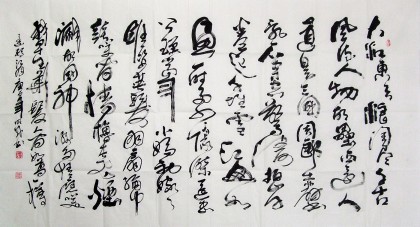 大江東去浪淘盡千古
風流人物故壘西邊人
道是三國周郎赤壁
亂石穿空驚濤拍岸
捲起千堆雪江山如
畫一時多少豪傑遙想
公瑾當年小喬初嫁了
雄姿英發羽扇綸巾
談笑間檣櫓灰飛煙
滅故國神遊多情應笑
我早生華髮人間如夢一樽